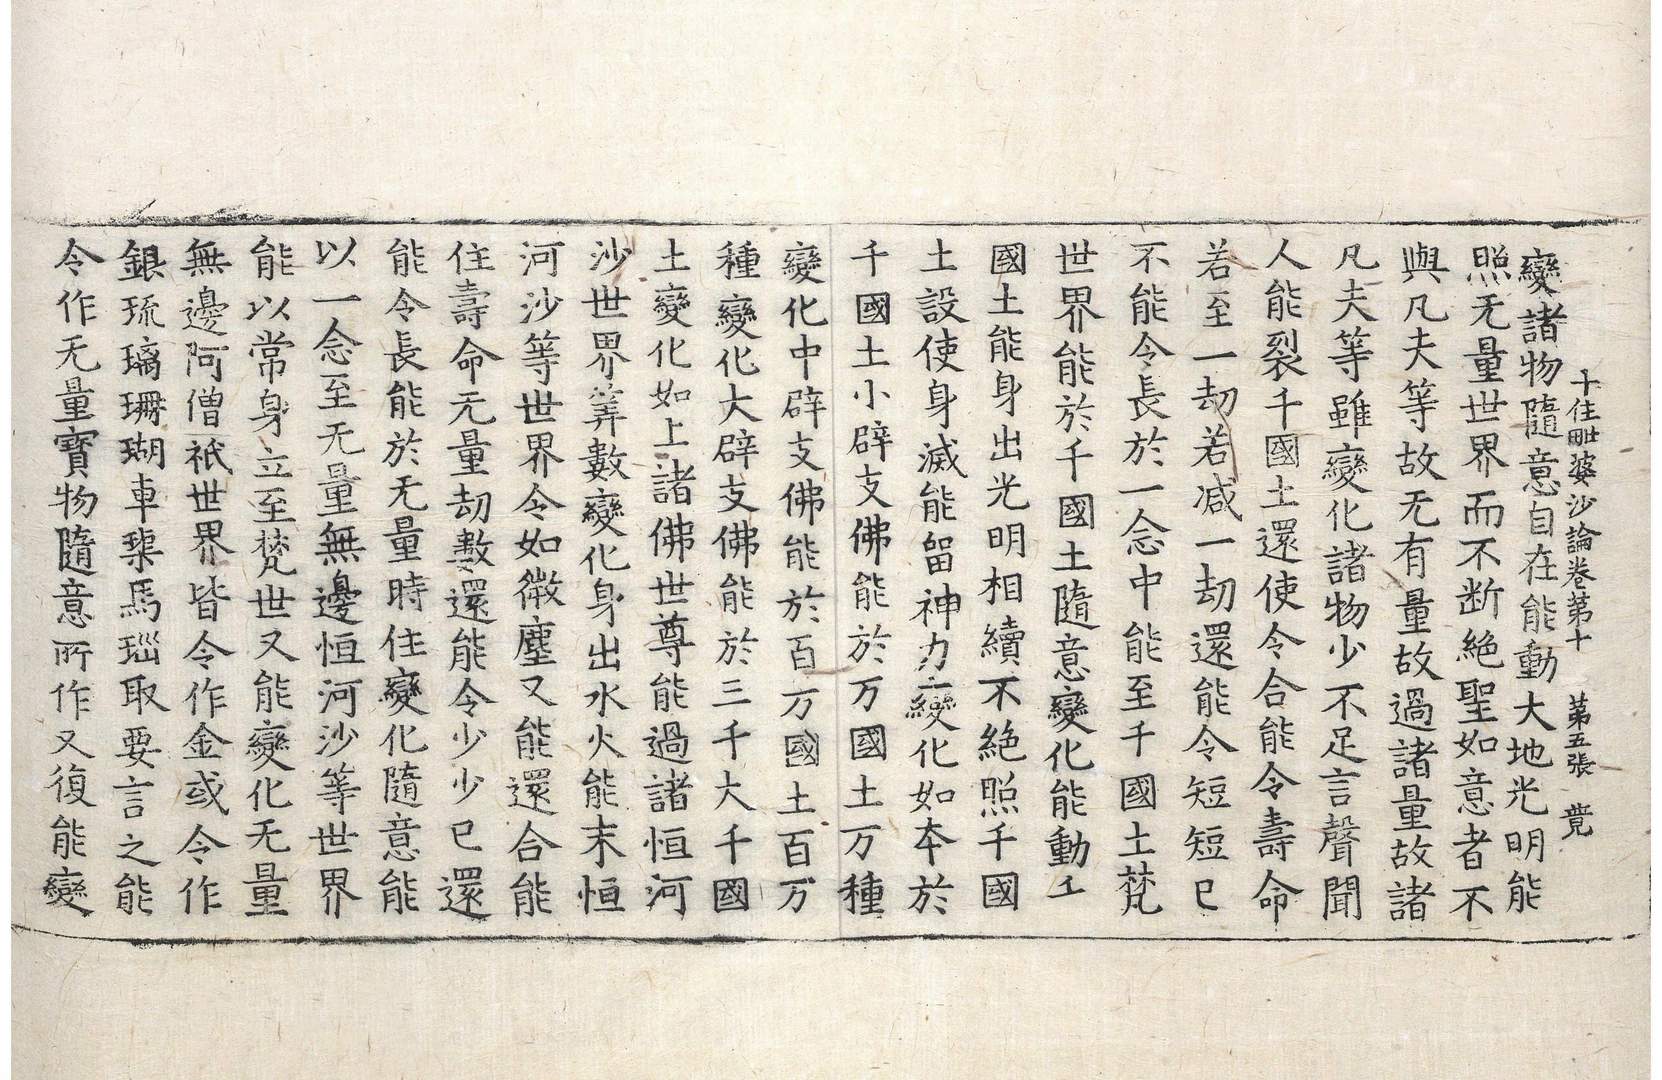 十住毗婆沙論卷第十　第五張　竟
變諸物隨意自在能動大地光明能
照无量世界而不断絶聖如意者不
與凡夫等故无有量故過諸量故諸
凡夫等雖變化諸物少不足言聲聞
人能裂千國土還使令合能令壽命
若至一劫若减一劫還能令短短已
不能令長於一念中能至千國土梵
世界能於千國土隨意變化能動千
國土能身出光明相續不絶照千國
土設使身滅能留神力變化如本於
千國土小辟支佛能於万國土万種
變化中辟支佛能於百万國土百万
種變化大辟支佛能於三千大千國
土變化如上諸佛世尊能過諸恒河
沙世界筭數變化身出水火能末恒
河沙等世界令如微塵又能還合能
住壽命无量劫數還能令少少已還
能令長能於无量時住變化隨意能
以一念至无量無邊恒河沙等世界
能以常身立至梵世又能變化无量
無邊阿僧祇世界皆令作金或令作
銀琉璃珊瑚車璖馬瑙取要言之能
令作无量寶物隨意所作又復能變